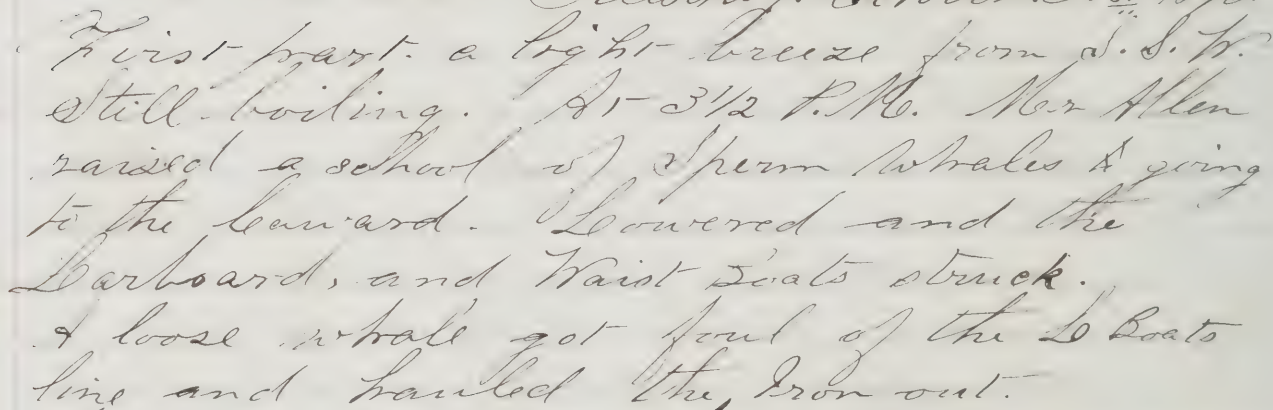 First part a light breeze from S.S.W.
Still boiling. At 3 1/2 P.M. Mr Allen
raised a school of Sperm Whales & going
to the leuward. Lowered and the
Larboard, and Waist Boats struck.
A loose whale got foul of the L Boats
line and hauled the Iron out.